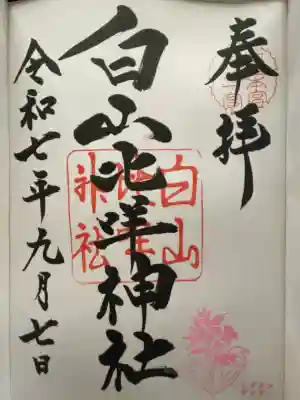 奉拝
白山比咩神社
白山
比咩
神社
令和七年九月七日